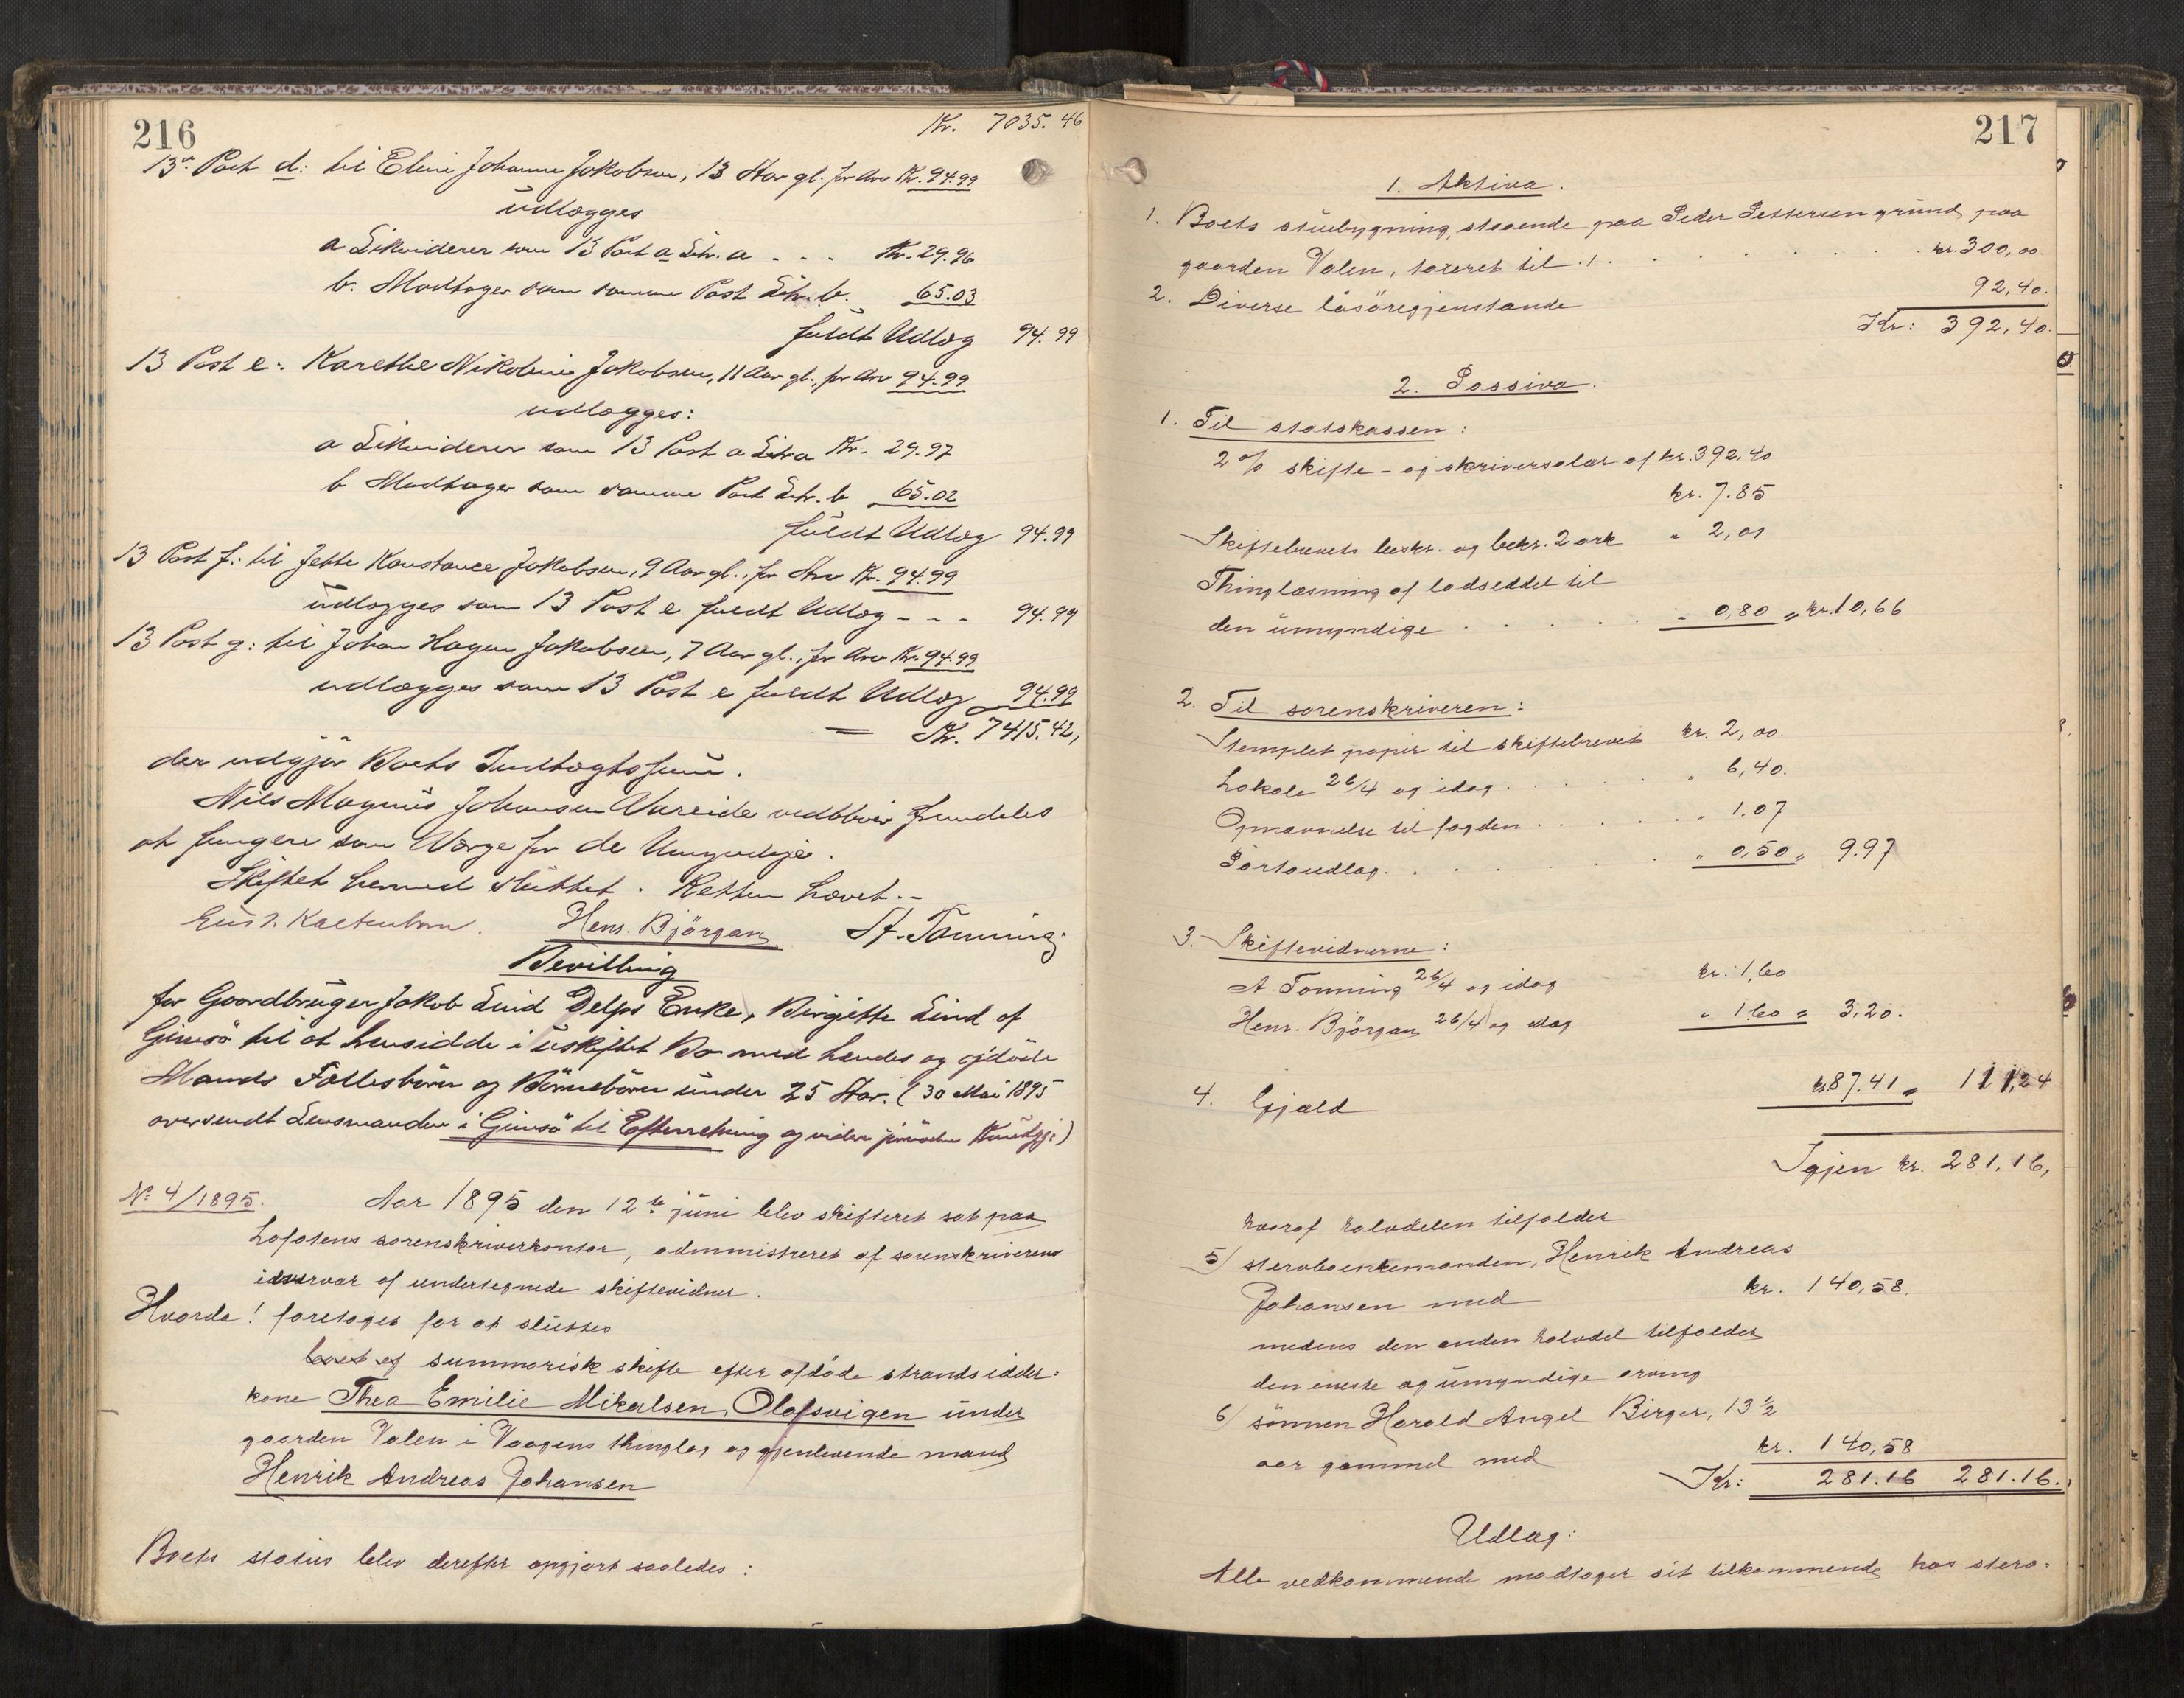 216
Kr. 7035.46
13de Post d: til Eline Johanne Jakobsen, 13 Aar gl. for Arv Kr. 94.99
udlægges
a Likviderer som 13 Post a Litr. a - - - Kr. 29.96
b. Modtager som samme Post Litr. b. 65.03
fuldt Udlæg 94.99
13 Post e: Karethe Nikoline Jakobsen, 11 Aar gl., for Arv 94.99
udlægges:
a Likviderer som 13 Post a Litra Kr. 29.97
b Modtager som samme Post Litr. b 65.02
fuldt Udlæg 94.99
13 Post f: til Jette Konstance Jakobsen, 9 Aar gl., for Arv Kr. 94.99
udlægges som 13 Post e fuldt Udlæg - - - 94.99
13 Post g: til Johan Hagen Jakobsen, 7 Aar gl., for Arv Kr. 94.99
udlægges som 13 Post e fuldt Udlæg 94.99
= Kr. 7415.42,
der udgjør Boets Indtægtssum.
Nils Magnus Johansen Vareide vedbliver fremdeles
at fungere som Værge for de Umyndige.
Skiftet hermed sluttet. Retten hævet. -
Hens. Bjørgan St. Tonning
Bevilling
for Gaardbruger Jakob Lind Delps Enke, Birgitte Lind af
Gimsø til at hensidde i uskiftet Bo med hendes og afdøde
Mands Fællesbørn og Børnebørn under 25 Aar. (30 Mai 1895
oversendt Lensmanden i Gimsø til Efterretning og videre Kundgj:)
No 4/1895. Aar 1895 den 12te juni blev skifteret sat paa
Lofotens sorenskriverkontor, administreret af sorenskriveren
i overvær af undertegnede skiftevidner.
Hvorda! foretoges for at sluttes
boet ef summarisk skifte efter afdøde strandsidder-
kone Thea Emilie Mikalsen, Olafsvigen under
gaarden Valen i Vaagens thinglag og gjenlevende mand
Henrik Andreas Johansen
Boets status blev derefter opgjort saaledes:
217
1. Aktiva.
1. Boets stuebygning, staaende paa Peder Pettersen grund paa
gaarden Valen, taxeret til . . . . . . . kr. 300,00.
2. Diverse løsøregjenstande 92,40.
Kr: 392,40.
2. Passiva.
1. Til statskassen:
2% skifte- og skriversalær af kr. 392,40
kr. 7.85
Skiftebrevets beskr. og bekr. 2 ark " 2,01
Thinglæsning af lodseddel til
den umyndige . . . . . " 0,80 = kr. 10,66
2. Til sorenskriveren:
Stemplet papir til skiftebrevet kr. 2,00.
Lokale 26/4 og idag . . . . " 6,40.
Opnævnelse til fogden . . . . . " 1.07
Portoudlæg . . . . . " 0,50 = 9.97
3. Skiftevidnerne:
A. Tonning 26/4 og idag kr. 1,60
Hens. Bjørgan 26/4 og idag " 1.60 = 3,20.
4. Gjæld kr. 87.41 = 111,24
Igjen kr. 281.16,
hvoraf halvdelen tilfalder
5) stervboenkemanden, Henrik Andreas
Johansen med kr. 140,58.
medens den anden halvdel tilfalder
den eneste og umyndige arving
6) sønnen Harald Angel Birger, 13 1/2
aar gammel med kr. 140,58
Kr: 281.16 281.16.
Udlæg:
Alle vedkommende modtager sit tilkommende hos sterv-